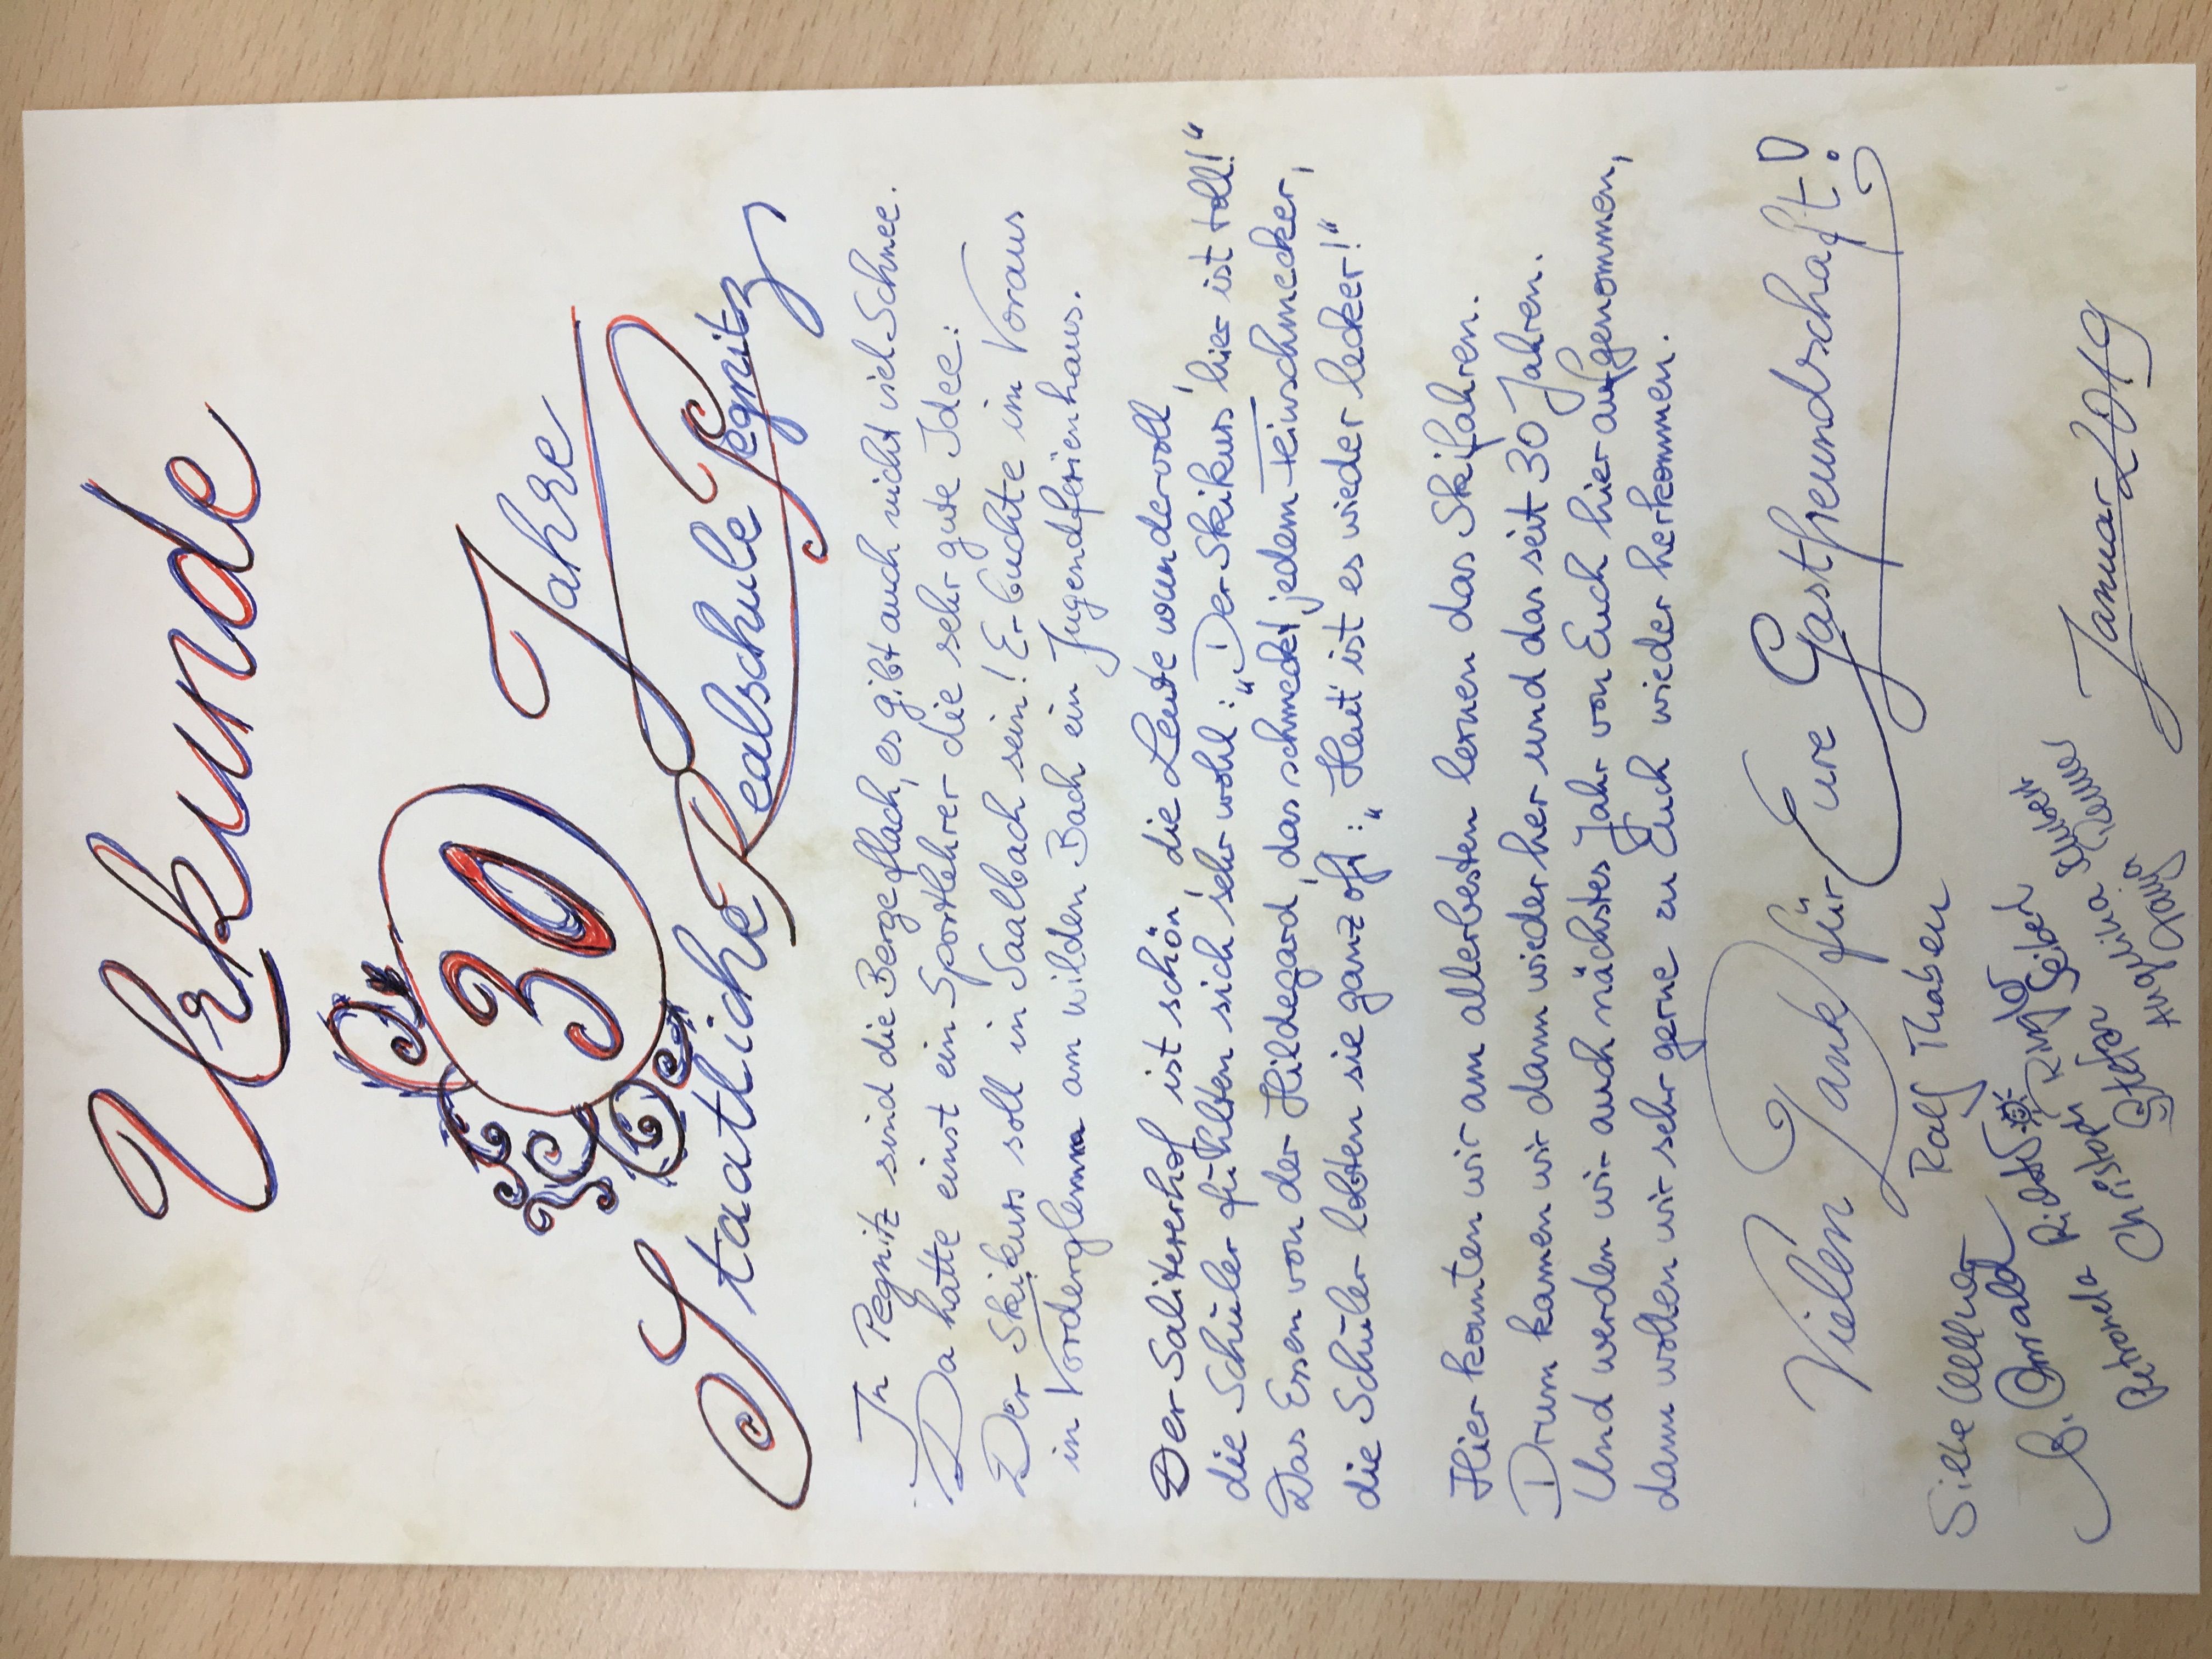 Urkunde
30 Jahre
Staatliche Realschule Pegnitz
In Pegnitz sind die Berge flach, es gibt auch nicht viel Schnee.
Da hatte einst ein Sportlehrer die sehr gute Idee:
Der Skikurs soll in Saalbach sein! Er buchte im Voraus
in Vorderglemm am wilden Bach ein Jugendferienhaus.
Der Salitererhof ist schön, die Leute wundervoll,
die Schüler fühlten sich sehr wohl: „Der Skikurs hier ist toll!“
Das Essen von der Hildegard, das schmeckt jedem Feinschmecker,
die Schüler lobten sie ganz oft: „Heut' ist es wieder lecker!“
Hier konnten wir am allerbesten lernen das Skifahren.
Drum kamen wir dann wieder her und das seit 30 Jahren.
Und werden wir auch nächstes Jahr von Euch hier aufgenommen,
dann wollen wir sehr gerne zu Euch wieder herkommen.
Vielen Dank für Eure Gastfreundschaft!
Ralf Thaben
Januar 2019
Petronela
Christoph
Stefan